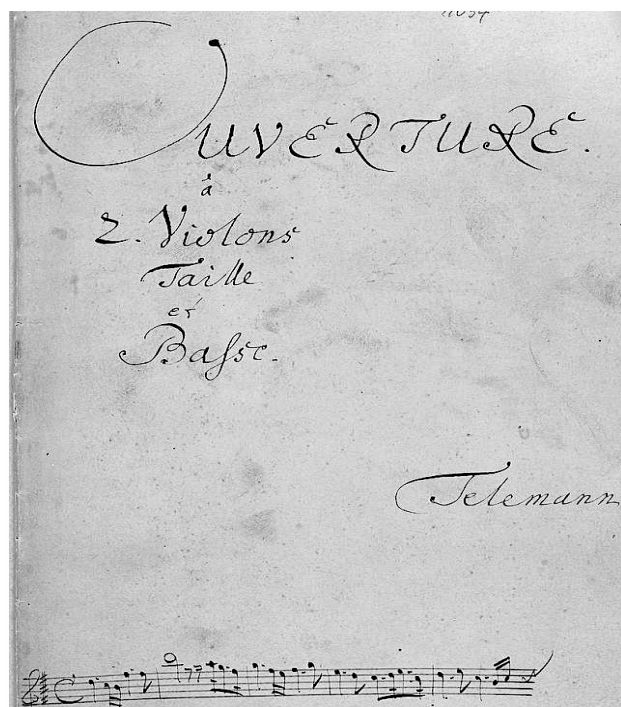 OUVERTURE.
à
2. Violons
Taille
et
Basse.
Telemann